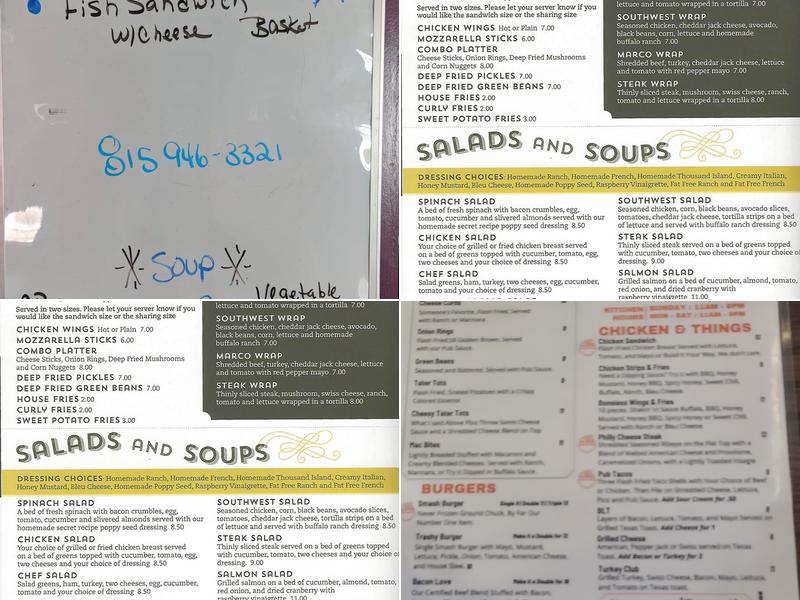 Fish Sandwich
w/Cheese Basket
815 946-3321
Soup
Vegetable
Served in two sizes. Please let your server know if you
would like the sandwich size or the sharing size
CHICKEN WINGS Hot or Plain 7.00
MOZZARELLA STICKS 6.00
COMBO PLATTER
Cheese Sticks, Onion Rings, Deep Fried Mushrooms
and Corn Nuggets 8.00
DEEP FRIED PICKLES 7.00
DEEP FRIED GREEN BEANS 7.00
HOUSE FRIES 2.00
CURLY FRIES 2.00
SWEET POTATO FRIES 3.00
lettuce and tomato wrapped in a tortilla 7.00
SOUTHWEST WRAP
Seasoned chicken, cheddar jack cheese, avocado,
black beans, corn, lettuce and homemade
buffalo ranch 7.00
MARCO WRAP
Shredded beef, turkey, cheddar jack cheese, lettuce
and tomato with red pepper mayo 7.00
STEAK WRAP
Thinly sliced steak, mushroom, swiss cheese, ranch,
tomato and lettuce wrapped in a tortilla 8.00
SALADS AND SOUPS
DRESSING CHOICES: Homemade Ranch, Homemade French, Homemade Thousand Island, Creamy Italian,
Honey Mustard, Bleu Cheese, Homemade Poppy Seed, Raspberry Vinaigrette, Fat Free Ranch and Fat Free French
SPINACH SALAD
A bed of fresh spinach with bacon crumbles, egg,
tomato, cucumber and slivered almonds served with our
homemade secret recipe poppy seed dressing 8.50
CHICKEN SALAD
Your choice of grilled or fried chicken breast served
on a bed of greens topped with cucumber, tomato, egg,
two cheeses and your choice of dressing 8.50
CHEF SALAD
Salad greens, ham, turkey, two cheeses, egg, cucumber,
tomato and your choice of dressing 8.50
SOUTHWEST SALAD
Seasoned chicken, corn, black beans, avocado slices,
tomatoes, cheddar jack cheese, tortilla strips on a bed
of lettuce and served with buffalo ranch dressing 8.50
STEAK SALAD
Thinly sliced steak served on a bed of greens topped
with cucumber, tomato, two cheeses and your choice of
dressing. 9.00
SALMON SALAD
Grilled salmon on a bed of cucumber, almond, tomato,
red onion, and dried cranberry with
raspberry vinaigrette 11.00
Served in two sizes. Please let your server know if you
would like the sandwich size or the sharing size
CHICKEN WINGS Hot or Plain 7.00
MOZZARELLA STICKS 6.00
COMBO PLATTER
Cheese Sticks, Onion Rings, Deep Fried Mushrooms
and Corn Nuggets 8.00
DEEP FRIED PICKLES 7.00
DEEP FRIED GREEN BEANS 7.00
HOUSE FRIES 2.00
CURLY FRIES 2.00
SWEET POTATO FRIES 3.00
lettuce and tomato wrapped in a tortilla 7.00
SOUTHWEST WRAP
Seasoned chicken, cheddar jack cheese, avocado,
black beans, corn, lettuce and homemade
buffalo ranch 7.00
MARCO WRAP
Shredded beef, turkey, cheddar jack cheese, lettuce
and tomato with red pepper mayo 7.00
STEAK WRAP
Thinly sliced steak, mushroom, swiss cheese, ranch,
tomato and lettuce wrapped in a tortilla 8.00
SALADS AND SOUPS
DRESSING CHOICES: Homemade Ranch, Homemade French, Homemade Thousand Island, Creamy Italian,
Honey Mustard, Bleu Cheese, Homemade Poppy Seed, Raspberry Vinaigrette, Fat Free Ranch and Fat Free French
SPINACH SALAD
A bed of fresh spinach with bacon crumbles, egg,
tomato, cucumber and slivered almonds served with our
homemade secret recipe poppy seed dressing 8.50
CHICKEN SALAD
Your choice of grilled or fried chicken breast served
on a bed of greens topped with cucumber, tomato, egg,
two cheeses and your choice of dressing 8.50
CHEF SALAD
Salad greens, ham, turkey, two cheeses, egg, cucumber,
tomato and your choice of dressing 8.50
SOUTHWEST SALAD
Seasoned chicken, corn, black beans, avocado slices,
tomatoes, cheddar jack cheese, tortilla strips on a bed
of lettuce and served with buffalo ranch dressing 8.50
STEAK SALAD
Thinly sliced steak served on a bed of greens topped
with cucumber, tomato, two cheeses and your choice of
dressing. 9.00
SALMON SALAD
Grilled salmon on a bed of cucumber, almond, tomato,
red onion, and dried cranberry with
raspberry vinaigrette 11.00
Cheese Curds
Onion Rings
Flash Fried till Golden Brown, Served
with our Pub Sauce.
Green Beans
Seasoned and Battered, Served with Pub Sauce.
Tater Tots
Cheesy Tater Tots
Mac Bites
BURGERS
Smash Burger
Number One Item.
Trashy Burger
Bacon Love
CHICKEN & THINGS
Chicken Sandwich
Chicken Strips & Fries
Boneless Wings & Fries
Philly Cheese Steak
Pub Tacos
BLT
Grilled Cheese
Add Bacon or Turkey for 3
Turkey Club